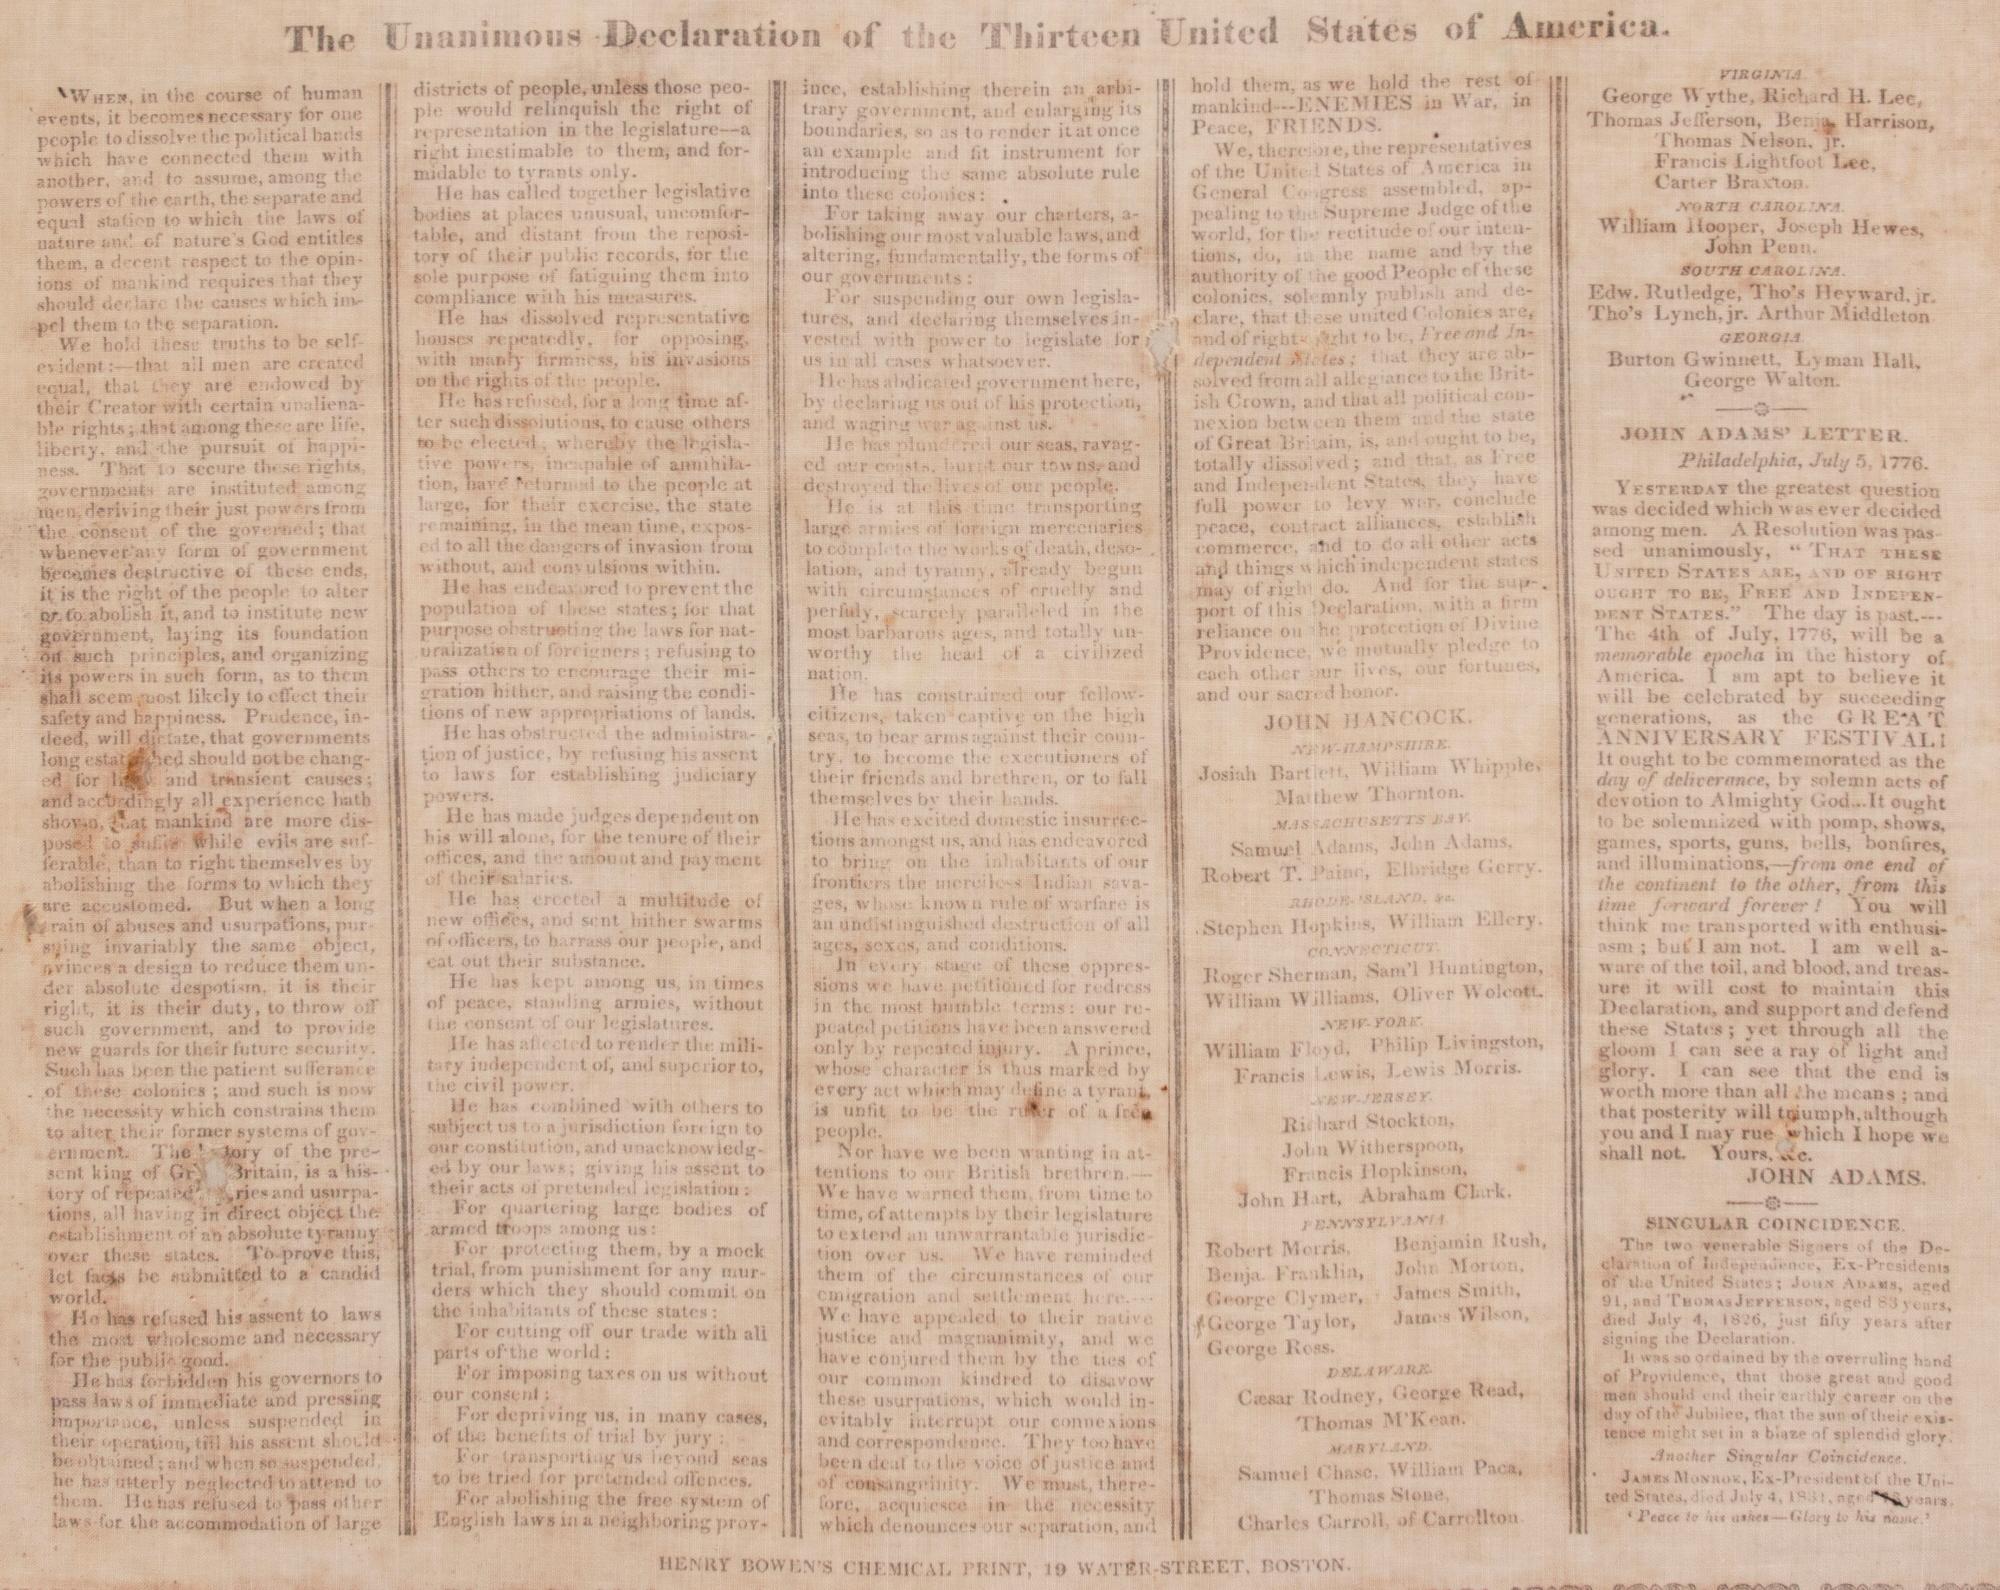 The Unanimous Declaration of the Thirteen United States of America.
WHEN, in the course of human
events, it becomes necessary for one
people to dissolve the political bands
which have connected them with
another, and to assume, among the
powers of the earth, the separate and
equal station to which the laws of
nature and of nature's God entitles
them, a decent respect to the opin-
ions of mankind requires that they
should declare the causes which im-
pel them to the separation.
We hold these truths to be self-
evident:—that all men are created
equal, that they are endowed by
their Creator with certain unaliena-
ble rights; that among these are life,
liberty, and the pursuit of happi-
ness. That to secure these rights,
governments are instituted among
men, deriving their just powers from
the consent of the governed; that
whenever any form of government
becomes destructive of these ends,
it is the right of the people to alter
or to abolish it, and to institute new
government, laying its foundation
on such principles, and organizing
its powers in such form, as to them
shall seem most likely to effect their
safety and happiness. Prudence, in-
deed, will dictate, that governments
long established should not be chang-
ed for light and transient causes;
and accordingly all experience hath
shown, that mankind are more dis-
posed to suffer while evils are suf-
ferable, than to right themselves by
abolishing the forms to which they
are accustomed. But when a long
rain of abuses and usurpations, pur-
suing invariably the same object,
evinces a design to reduce them un-
der absolute despotism, it is their
right, it is their duty, to throw off
such government, and to provide
new guards for their future security.
Such has been the patient sufferance
of these colonies; and such is now
the necessity which constrains them
to alter their former systems of gov-
ernment. The tory of the pre-
sent king of Gr Britain, is a his-
tory of repeated ries and usurpa-
tions, all having in direct object the
establishment of an absolute tyranny
over these states. To prove this,
let facts be submitted to a candid
world.
He has refused his assent to laws
the most wholesome and necessary
for the public good.
He has forbidden his governors to
pass laws of immediate and pressing
importance, unless suspended in
their operation, till his assent should
be obtained; and when so suspended,
he has utterly neglected to attend to
them. He has refused to pass other
laws for the accommodation of large
districts of people, unless those peo-
ple would relinquish the right of
representation in the legislature—a
right inestimable to them, and for-
midable to tyrants only.
He has called together legislative
bodies at places unusual, uncomfor-
table, and distant from the reposi-
tory of their public records, for the
sole purpose of fatiguing them into
compliance with his measures.
He has dissolved representative
houses repeatedly, for opposing,
with manly firmness, his invasions
on the rights of the people.
He has refused, for a long time af-
ter such dissolutions, to cause others
to be elected; whereby the legisla-
tive powers, incapable of annihila-
tion, have returned to the people at
large, for their exercise, the state
remaining, in the mean time, expos-
ed to all the dangers of invasion from
without, and convulsions within.
He has endeavored to prevent the
population of these states; for that
purpose obstructing the laws for nat-
uralization of foreigners; refusing to
pass others to encourage their mi-
gration hither, and raising the condi-
tions of new appropriations of lands.
He has obstructed the administra-
tion of justice, by refusing his assent
to laws for establishing judiciary
powers.
He has made judges dependent on
his will alone, for the tenure of their
offices, and the amount and payment
of their salaries.
He has erected a multitude of
new offices, and sent hither swarms
of officers, to harrass our people, and
eat out their substance.
He has kept among us, in times
of peace, standing armies, without
the consent of our legislatures.
He has affected to render the mili-
tary independent of, and superior to,
the civil power.
He has combined with others to
subject us to a jurisdiction foreign to
our constitution, and unacknowledg-
ed by our laws; giving his assent to
their acts of pretended legislation:
For quartering large bodies of
armed troops among us:
For protecting them, by a mock
trial, from punishment for any mur-
ders which they should commit on
the inhabitants of these states:
For cutting off our trade with all
parts of the world:
For imposing taxes on us without
our consent:
For depriving us, in many cases,
of the benefits of trial by jury:
For transporting us beyond seas
to be tried for pretended offences.
For abolishing the free system of
English laws in a neighboring prov-
ince, establishing therein an arbi-
trary government, and enlarging its
boundaries, so as to render it at once
an example and fit instrument for
introducing the same absolute rule
into these colonies:
For taking away our charters, a-
bolishing our most valuable laws, and
altering, fundamentally, the forms of
our governments:
For suspending our own legisla-
tures, and declaring themselves in-
vested with power to legislate for
us in all cases whatsoever.
He has abdicated government here,
by declaring us out of his protection,
and waging war against us.
He has plundered our seas, ravag-
ed our coasts, burnt our towns, and
destroyed the lives of our people.
He is at this time transporting
large armies of foreign mercenaries
to complete the works of death, deso-
lation, and tyranny, already begun
with circumstances of cruelty and
perfidy, scarcely paralleled in the
most barbarous ages, and totally un-
worthy the head of a civilized
nation.
He has constrained our fellow-
citizens, taken captive on the high
seas, to bear arms against their coun-
try, to become the executioners of
their friends and brethren, or to fall
themselves by their hands.
He has excited domestic insurrec-
tions amongst us, and has endeavored
to bring on the inhabitants of our
frontiers the merciless Indian sava-
ges, whose known rule of warfare is
an undistinguished destruction of all
ages, sexes, and conditions.
In every stage of these oppres-
sions we have petitioned for redress
in the most humble terms: our re-
peated petitions have been answered
only by repeated injury. A prince,
whose character is thus marked by
every act which may define a tyrant,
is unfit to be the ruler of a free
people.
Nor have we been wanting in at-
tentions to our British brethren.—
We have warned them, from time to
time, of attempts by their legislature
to extend an unwarrantable jurisdic-
tion over us. We have reminded
them of the circumstances of our
emigration and settlement here.---
We have appealed to their native
justice and magnanimity, and we
have conjured them by the ties of
our common kindred to disavow
these usurpations, which would in-
evitably interrupt our connexions
and correspondence. They too have
been deaf to the voice of justice and
of consanguinity. We must, there-
fore, acquiesce in the necessity
which denounces our separation, and
hold them, as we hold the rest of
mankind---ENEMIES in War, in
Peace, FRIENDS.
We, therefore, the representatives
of the United States of America in
General Congress assembled, ap-
pealing to the Supreme Judge of the
world, for the rectitude of our inten-
tions, do, in the name and by the
authority of the good People of these
colonies, solemnly publish and de-
clare, that these united Colonies are,
and of right ought to be, Free and In-
dependent States; that they are ab-
solved from all allegiance to the Brit-
ish Crown, and that all political con-
nexion between them and the state
of Great Britain, is, and ought to be,
totally dissolved; and that, as Free
and Independent States, they have
full power to levy war, conclude
peace, contract alliances, establish
commerce, and to do all other acts
and things which independent states
may of right do. And for the sup-
port of this Declaration, with a firm
reliance on the protection of Divine
Providence, we mutually pledge to
each other our lives, our fortunes,
and our sacred honor.
JOHN HANCOCK.
NEW-HAMPSHIRE.
Josiah Bartlett, William Whipple,
Matthew Thornton.
MASSACHUSETTS BAY.
Samuel Adams, John Adams,
Robert T. Paine, Elbridge Gerry.
RHODE-ISLAND, &c.
Stephen Hopkins, William Ellery.
CONNECTICUT.
Roger Sherman, Sam'l Huntington,
William Williams, Oliver Wolcott.
NEW-YORK.
William Floyd, Philip Livingston,
Francis Lewis, Lewis Morris.
NEW-JERSEY.
Richard Stockton,
John Witherspoon,
Francis Hopkinson,
John Hart, Abraham Clark.
PENNSYLVANIA
Robert Morris, Benjamin Rush,
Benja. Franklin, John Morton,
George Clymer, James Smith,
George Taylor, James Wilson,
George Ross.
DELAWARE.
Cæsar Rodney, George Read,
Thomas M'Kean.
MARYLAND.
Samuel Chase, William Paca,
Thomas Stone,
Charles Carroll, of Carrollton.
VIRGINIA.
George Wythe, Richard H. Lee,
Thomas Jefferson, Benja. Harrison,
Thomas Nelson, jr.
Francis Lightfoot Lee,
Carter Braxton.
NORTH CAROLINA.
William Hooper, Joseph Hewes,
John Penn.
SOUTH CAROLINA.
Edw. Rutledge, Tho's Heyward, jr.
Tho's Lynch, jr. Arthur Middleton
GEORGIA.
Burton Gwinnett, Lyman Hall,
George Walton.
JOHN ADAMS' LETTER.
Philadelphia, July 5, 1776.
YESTERDAY the greatest question
was decided which was ever decided
among men. A Resolution was pas-
sed unanimously, "THAT THESE
UNITED STATES ARE, AND OF RIGHT
OUGHT TO BE, FREE AND INDEPEN-
DENT STATES." The day is past.---
The 4th of July, 1776, will be a
memorable epocha in the history of
America. I am apt to believe it
will be celebrated by succeeding
generations, as the GREAT
ANNIVERSARY FESTIVAL!
It ought to be commemorated as the
day of deliverance, by solemn acts of
devotion to Almighty God...It ought
to be solemnized with pomp, shows,
games, sports, guns, bells, bonfires,
and illuminations,—from one end of
the continent to the other, from this
time forward forever! You will
think me transported with enthusi-
asm; but I am not. I am well a-
ware of the toil, and blood, and treas-
ure it will cost to maintain this
Declaration, and support and defend
these States; yet through all the
gloom I can see a ray of light and
glory. I can see that the end is
worth more than all the means; and
that posterity will triumph, although
you and I may rue, which I hope we
shall not. Yours, &c.
JOHN ADAMS.
SINGULAR COINCIDENCE.
The two venerable Signers of the De-
claration of Independence, Ex-Presidents
of the United States; JOHN ADAMS, aged
91, and THOMAS JEFFERSON, aged 83 years,
died July 4, 1826, just fifty years after
signing the Declaration.
It was so ordained by the overruling hand
of Providence, that those great and good
men should end their earthly career on the
day of the Jubilee, that the sun of their exis-
tence might set in a blaze of splendid glory.
Another Singular Coincidence.
JAMES MONROE, Ex-President of the Uni-
ted States, died July 4, 1831, aged years.
'Peace to his ashes—Glory to his name.'
HENRY BOWEN'S CHEMICAL PRINT, 19 WATER-STREET, BOSTON.